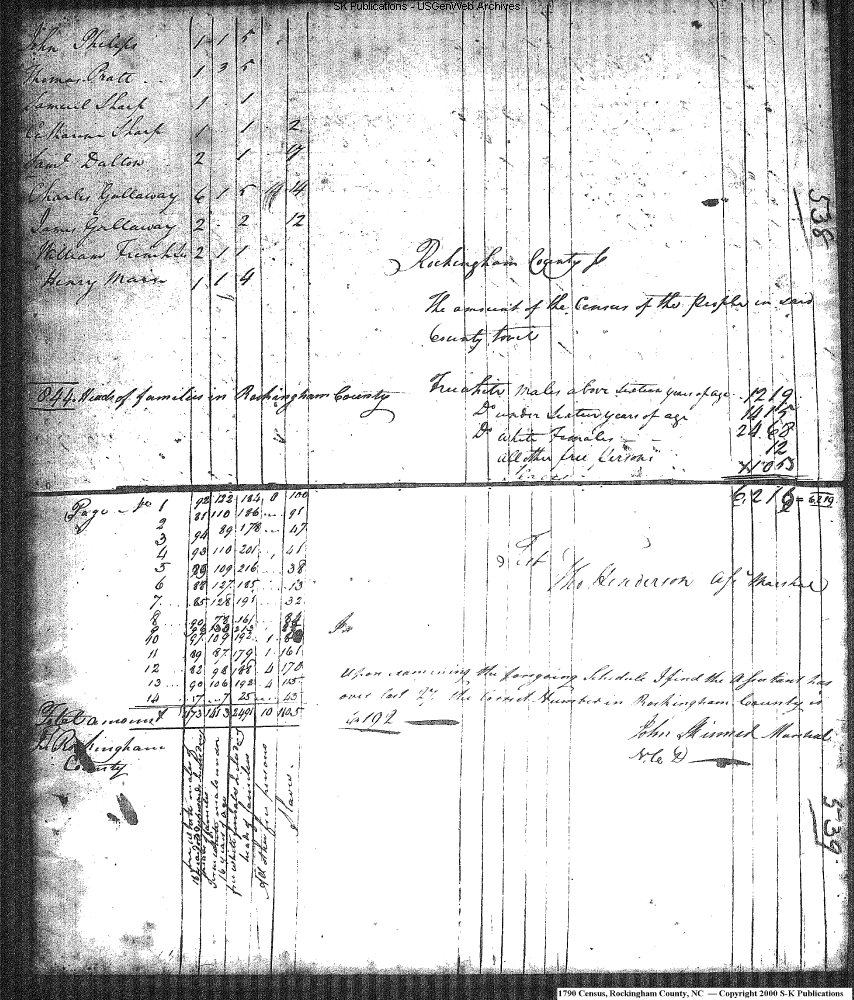 SK Publications - USGenWeb Archives
John Philips 1 1 5
Thomas Pratt 1 3 5
Samuel Sharp 1 . 1
Catharine Sharp 1 . 1 . 2
Saml Dalton 2 . 1 . 17
Charles Gallaway 6 1 5 14
James Gallaway 2 . 2 12
William 2 1 1
Henry Marr 1 1 4
538
Rockingham County
The amount of the Census of the People in said
County
844 Heads of families in Rockingham County
Free white males above sixteen years of age 1219
Do under sixteen years of age 1415
Do white Females 2468
all other free Persons 12
6216 = 6219
Page No 1 92 122 184 0 100
2 81 110 186 91
3 94 89 178 47
4 93 110 201 41
5 109 216 38
6 88 127 185 13
7 85 128 191 32
8 90 78 161
9
10 97 109 192 1
11 89 87 179 1 161
12 82 98 188 4 170
13 90 106 192 4 115
14 17 7 25 43
Total amount 1173 1413 2491 10 1105
Rockingham
County
free white males
free white males under
16 years of age
free white females including
heads of families
All other free persons
Slaves
Test
Tho Henderson Asst Marshal
Upon examining the foregoing Schedule I find the Assistant has
over Cast 27. the Correct Number in Rockingham County is
6192
John Skinner Marshal
N.C. D
539
1790 Census, Rockingham County, NC — Copyright 2000 S-K Publications